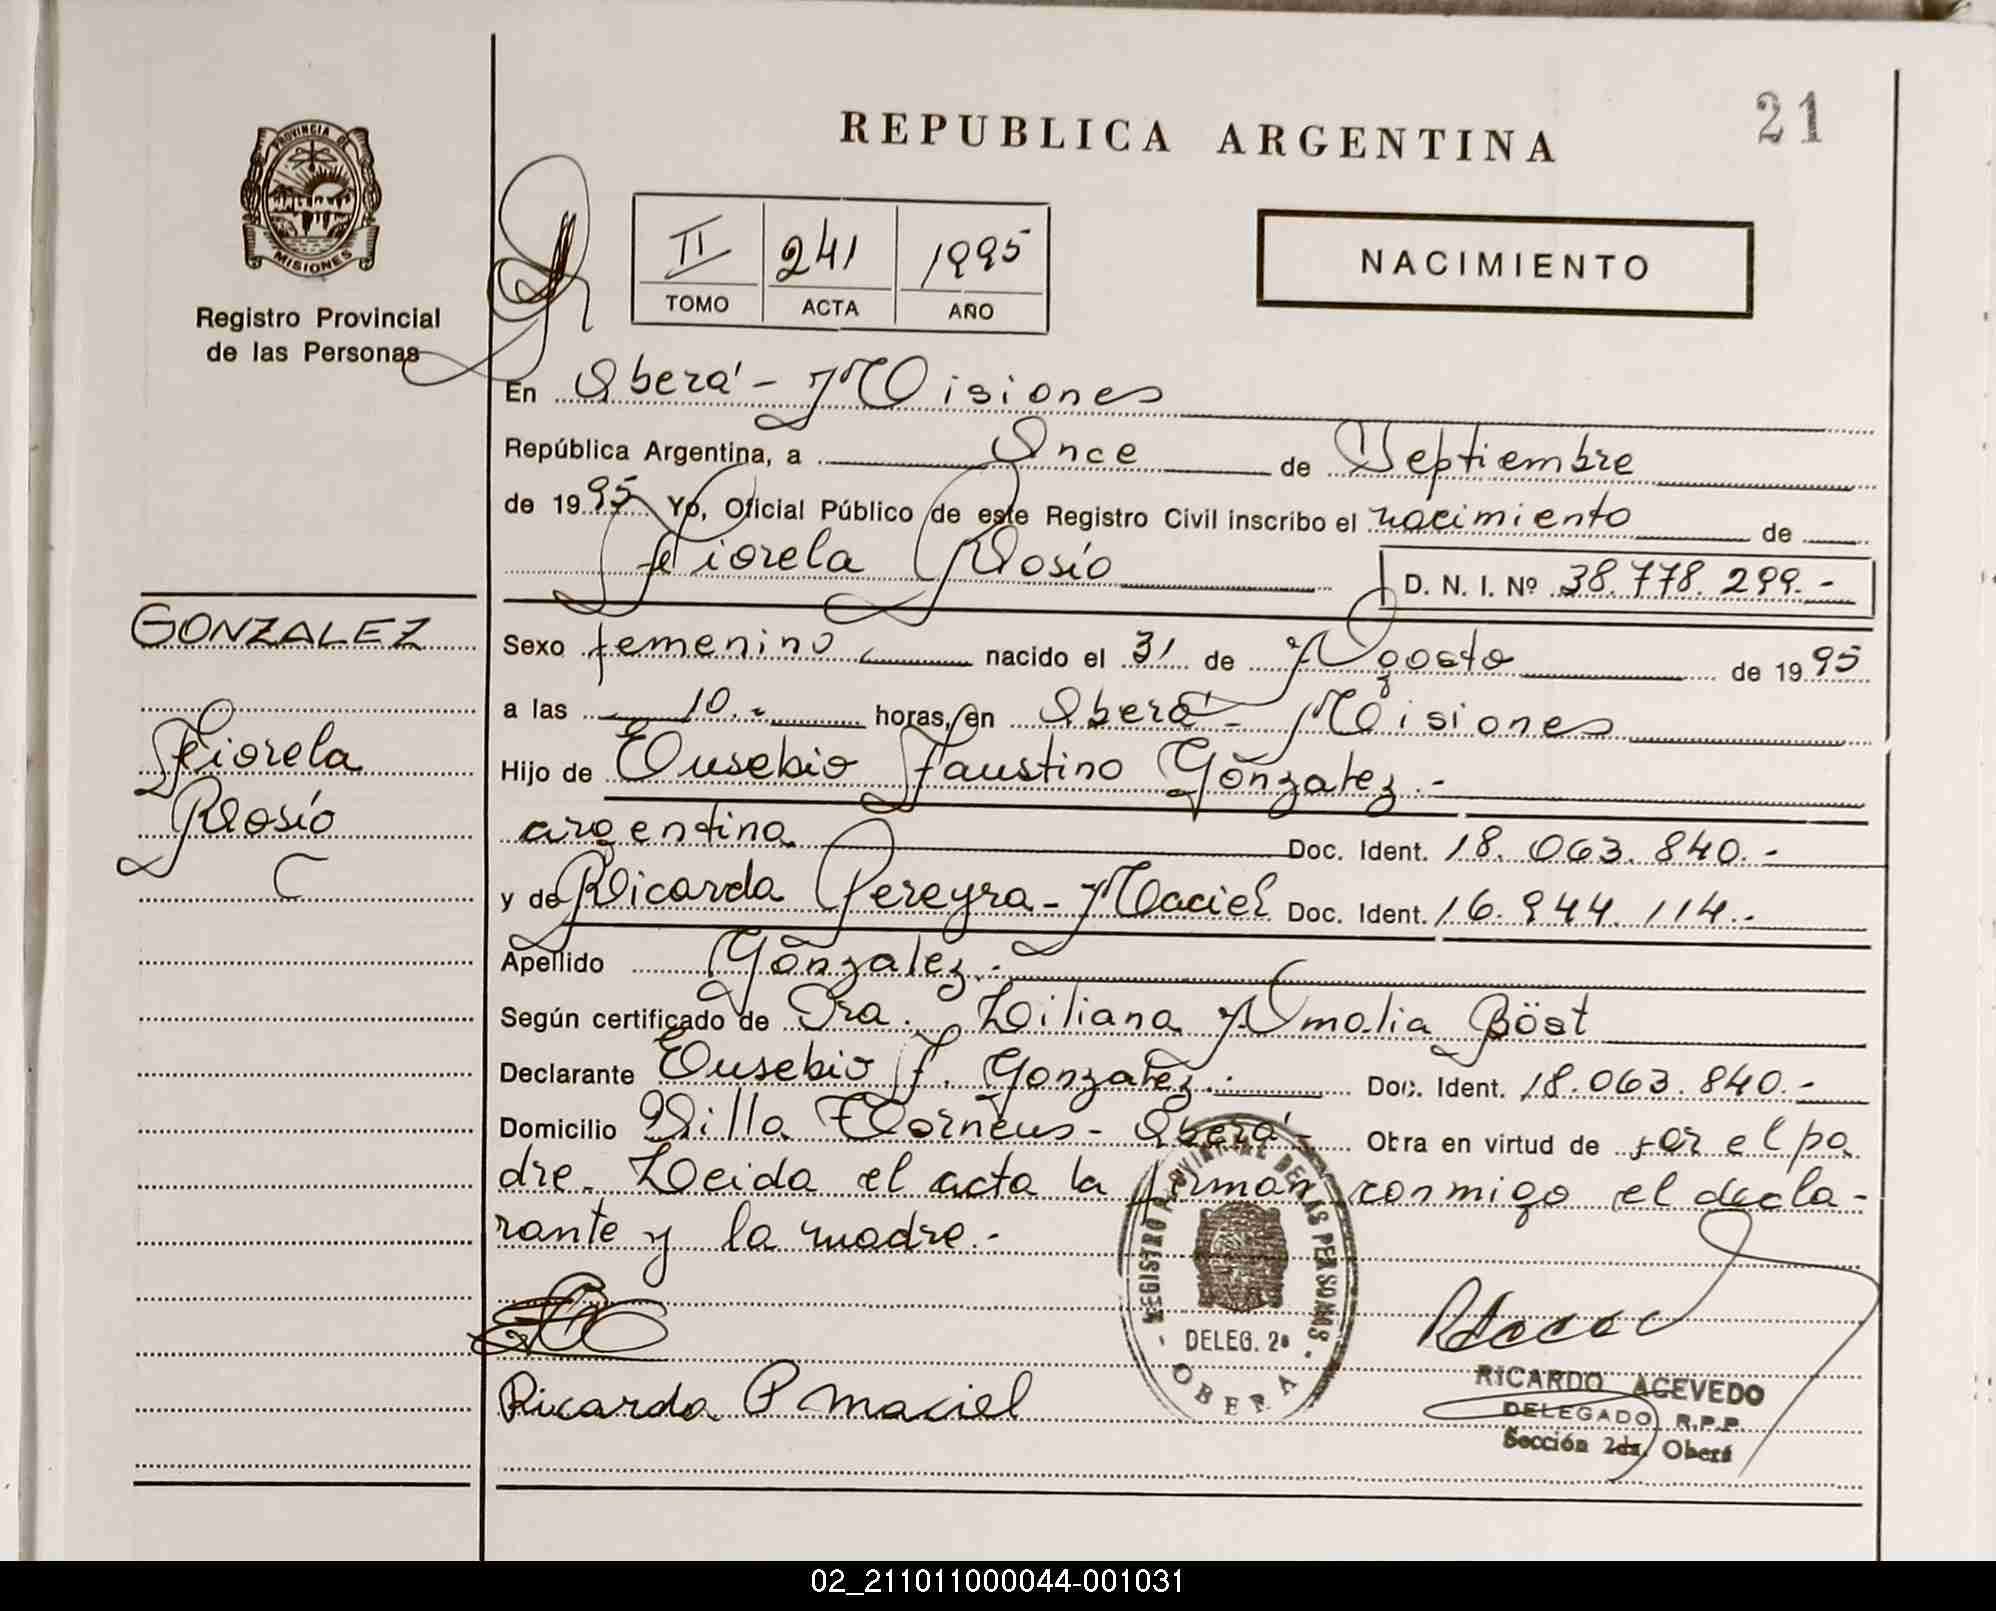 REPUBLICA ARGENTINA
21
PROVINCIA DE
MISIONES
Registro Provincial
de las Personas
II 241 1995
TOMO ACTA AÑO
NACIMIENTO
En Oberá - Misiones
República Argentina, a Once de Septiembre
de 1995 Yo, Oficial Público de este Registro Civil inscribo el nacimiento de
Fiorela Rosío D. N. I. Nº 38.778.299.-
GONZALEZ
Fiorela
Rosío
Sexo femenino nacido el 31 de Agosto de 1995
a las 10.- horas, en Oberá - Misiones
Hijo de Eusebio Faustino González.-
argentina Doc. Ident. 18.063.840.-
y de Ricarda Pereyra - Maciel Doc. Ident. 16.944.114.-
Apellido González.-
Según certificado de Dra. Liliana Amalia Böst
Declarante Eusebio F. González.- Doc. Ident. 18.063.840.-
Domicilio Villa - Oberá - Obra en virtud de ser el pa
dre. Leida el acta la firman conmigo el decla-
rante y la madre.-
REGISTRO PROVINCIAL DE LAS PERSONAS
DELEG. 2ª
OBERA
Ricarda P Maciel
RICARDO ACEVEDO
DELEGADO R.P.P.
Sección 2da. Oberá
02_211011000044-001031